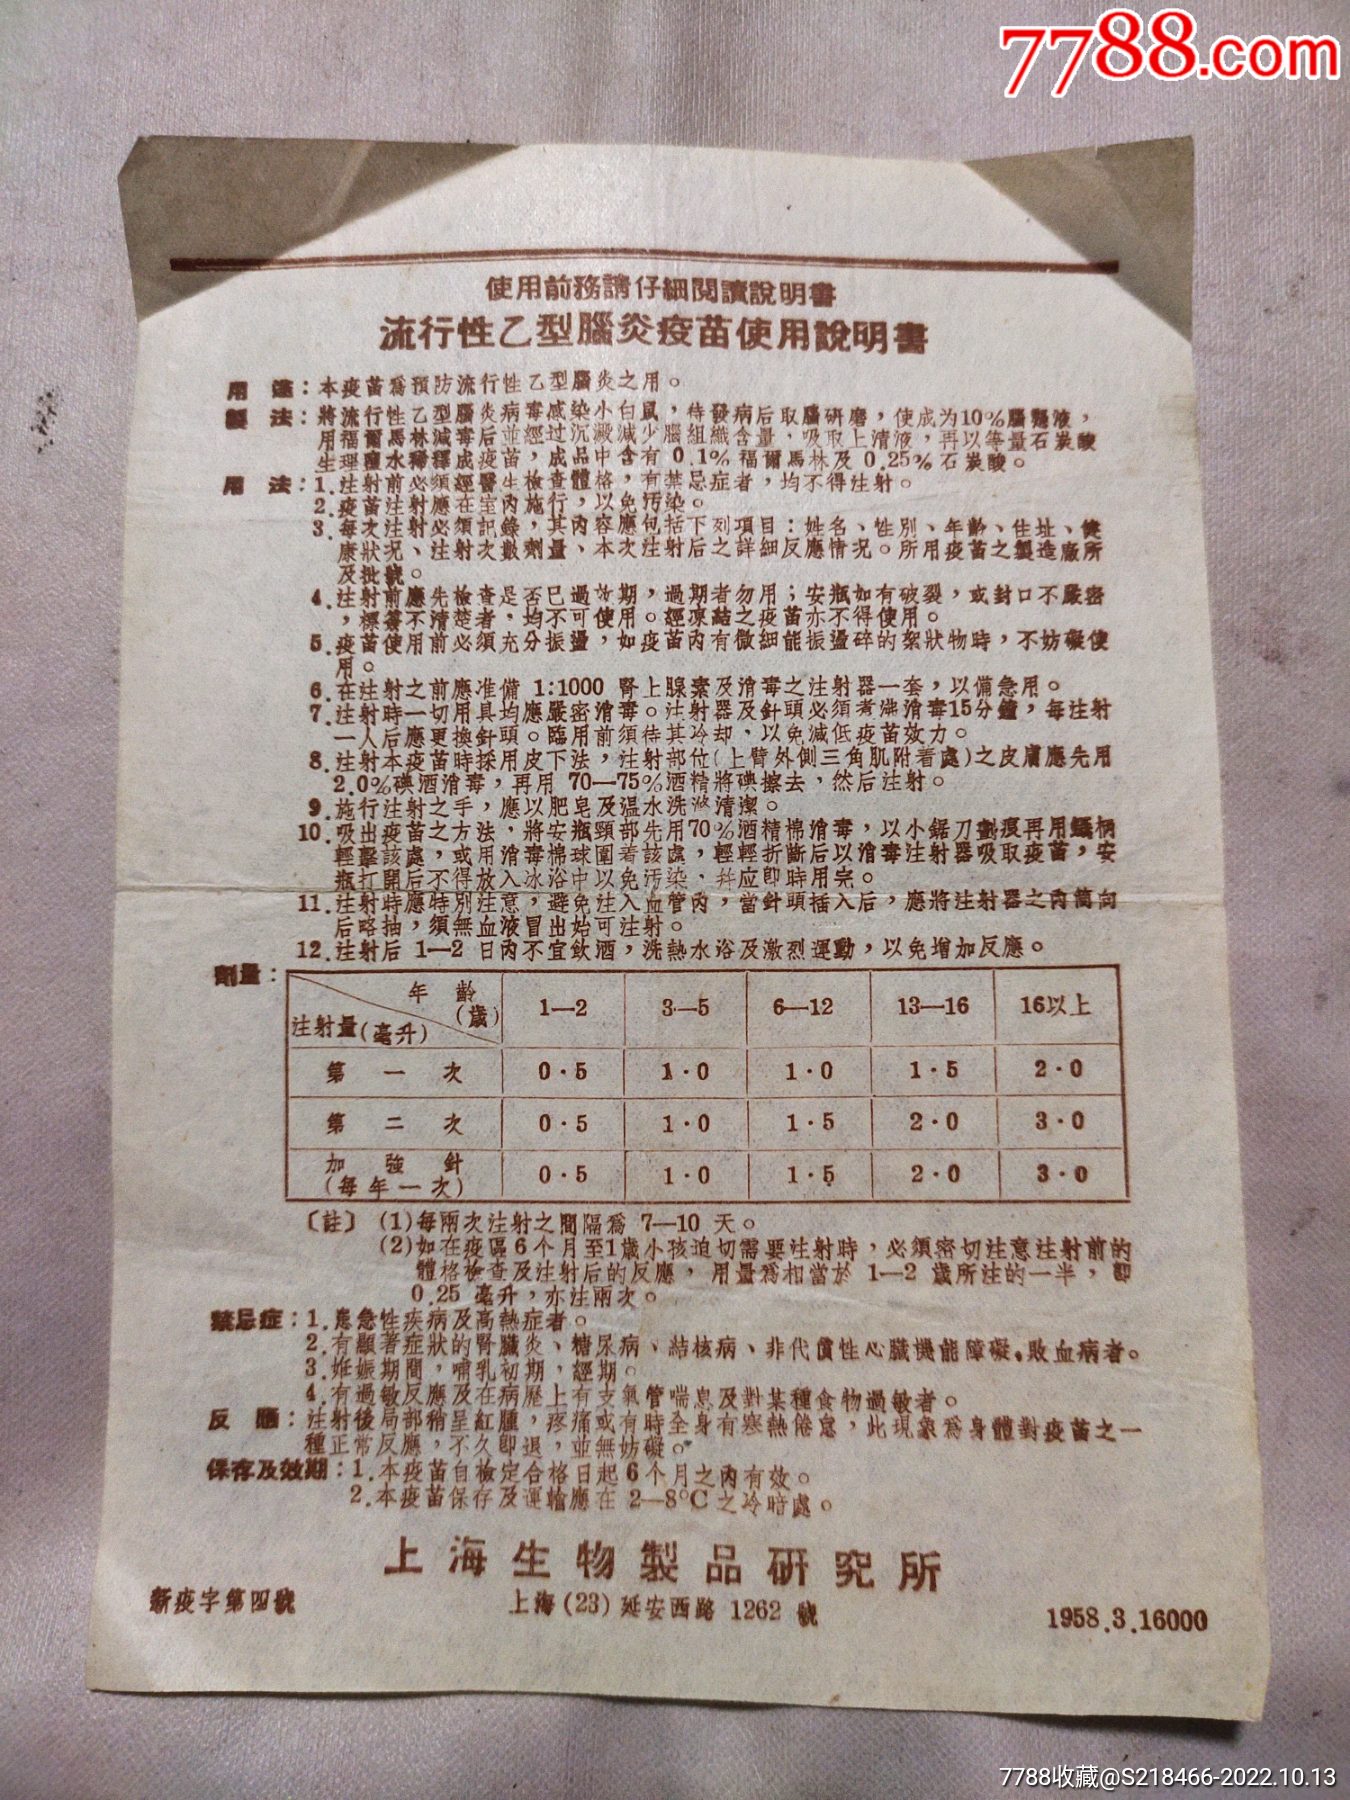 7788.com
使用前務請仔細閱讀說明書
流行性乙型腦炎疫苗使用說明書
用 途：本疫苗爲預防流行性乙型腦炎之用。
製 法：將流行性乙型腦炎病毒感染小白鼠，待發病后取腦研磨，使成为10%腦懸液，
用福爾馬林減毒后並經过沉澱減少腦組織含量，吸取上清液，再以等量石炭酸
生理鹽水稀釋成疫苗，成品中含有 0.1% 福爾馬林及 0.25% 石炭酸。
用 法：1.注射前必須經醫生檢查體格，有禁忌症者，均不得注射。
2.疫苗注射應在室內施行，以免汚染。
3.每次注射必須記錄，其內容應包括下列項目：姓名、性別、年齡、住址、健
康狀况、注射次數劑量、本次注射后之詳細反應情况。所用疫苗之製造廠所
及批號。
4.注射前應先檢查是否已過效期，過期者勿用；安瓶如有破裂，或封口不嚴密
，標簽不清楚者，均不可使用。經凍結之疫苗亦不得使用。
5.疫苗使用前必須充分振盪，如疫苗內有微細能振盪碎的絮狀物時，不妨礙使
用。
6.在注射之前應准備 1:1000 腎上腺素及消毒之注射器一套，以備急用。
7.注射時一切用具均應嚴密消毒。注射器及針頭必須煮沸消毒15分鐘，每注射
一人后應更換針頭。臨用前須待其冷却，以免減低疫苗效力。
8.注射本疫苗時採用皮下法，注射部位(上臂外側三角肌附着處)之皮膚應先用
2.0%碘酒消毒，再用 70—75%酒精將碘擦去，然后注射。
9.施行注射之手，應以肥皂及温水洗滌清潔。
10.吸出疫苗之方法，將安瓶頸部先用70%酒精棉消毒，以小鋸刀劃痕再用鑷柄
輕擊該處，或用消毒棉球圍着該處，輕輕折斷后以消毒注射器吸取疫苗，安
瓶打開后不得放入冰浴中以免汚染，幷应卽時用完。
11.注射時應特別注意，避免注入血管內，當針頭插入后，應將注射器之內筒向
后略抽，須無血液冒出始可注射。
12.注射后 1—2 日內不宜飲酒，洗熱水浴及激烈運動，以免增加反應。
劑量：
年 齡(歲) 1—2 3—5 6—12 13—16 16以上
注射量(毫升)
第 一 次 0·5 1·0 1·0 1·5 2·0
第 二 次 0·5 1·0 1·5 2·0 3·0
加 強 針 0·5 1·0 1·5 2·0 3·0
(每年一次)
〔註〕(1)每兩次注射之間隔爲 7—10 天。
(2)如在疫區6个月至1歲小孩迫切需要注射時，必須密切注意注射前的
體格檢查及注射后的反應，用量爲相當於 1—2 歲所注的一半，卽
0.25 毫升，亦注兩次。
禁忌症：1.患急性疾病及高熱症者。
2.有顯著症狀的腎臟炎、糖尿病、結核病、非代償性心臟機能障礙、敗血病者。
3.姙娠期間，哺乳初期，經期。
4.有過敏反應及在病歷上有支氣管喘息及對某種食物過敏者。
反 應：注射後局部稍呈紅腫，疼痛或有時全身有寒熱倦怠，此現象爲身體對疫苗之一
種正常反應，不久卽退，並無妨礙。
保存及效期：1.本疫苗自檢定合格日起6个月之內有效。
2.本疫苗保存及運輸應在 2—8°C 之冷暗處。
上海生物製品研究所
新疫字第四號
上海(23)延安西路 1262 號
1958.3.16000
7788收藏@S218466-2022.10.13